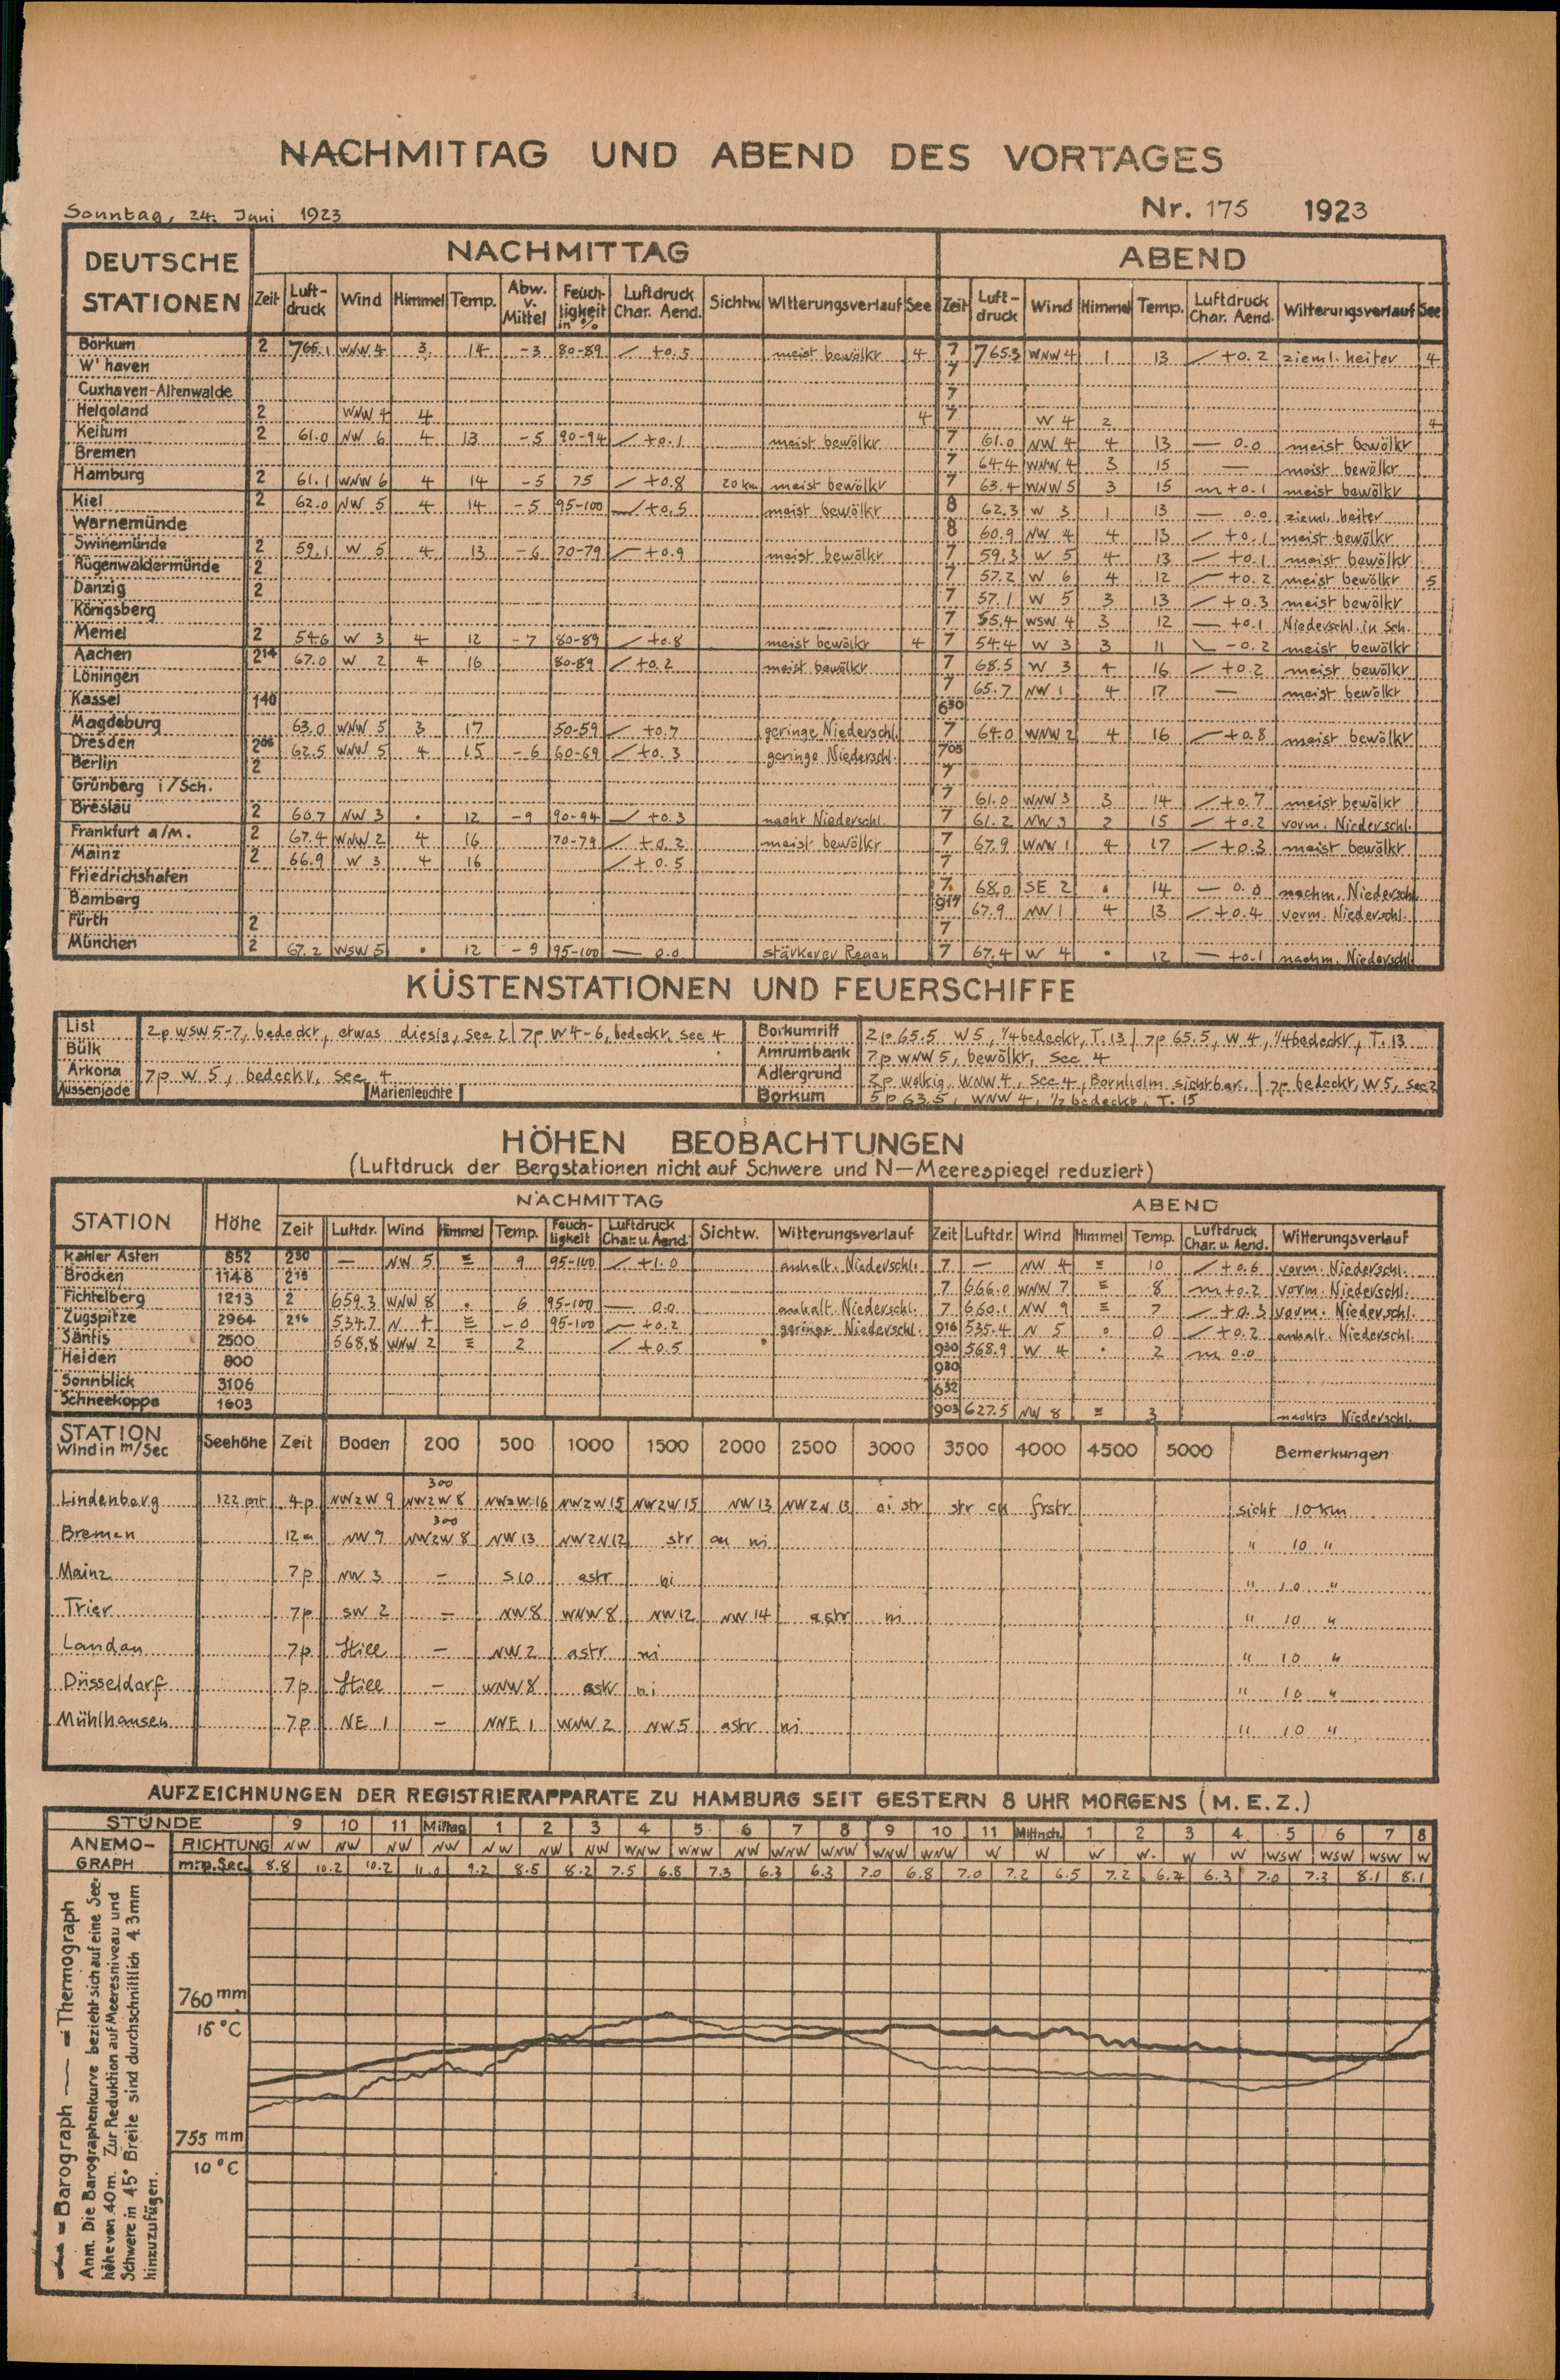 NACHMITTAG UND ABEND DES VORTAGES
Sonntag, 24. Juni 1923 Nr. 175 1923
DEUTSCHE STATIONEN NACHMITTAG ABEND
Zeit Luftdruck Wind Himmel Temp. Abw. v. Mittel Feuchtigkeit in % Luftdruck Char. Aend. Sichtw. Witterungsverlauf See Zeit Luftdruck Wind Himmel Temp. Luftdruck Char. Aend. Witterungsverlauf See
Borkum 2 765.1 WNW 4 3 14 -3 80-89 +0.5 meist bewölkt 4 7 765.3 WNW 4 1 13 +0.2 zieml. heiter 4
W'haven 7
Cuxhaven-Altenwalde 7
Helgoland 2 WNW 4 4 4 7 W 4 2 4
Keitum 2 61.0 NW 6 4 13 -5 90-94 +0.1 meist bewölkt 7 61.0 NW 4 4 13 — 0.0 meist bewölkt
Bremen 7 64.4 WNW 4 3 15 — meist bewölkt
Hamburg 2 61.1 WNW 6 4 14 -5 75 +0.8 20 km meist bewölkt 7 63.4 WNW 5 3 15 +0.1 meist bewölkt
Kiel 2 62.0 NW 5 4 14 -5 95-100 +0.5 meist bewölkt 8 62.3 W 3 1 13 — 0.0 zieml. heiter
Warnemünde 8 60.9 NW 4 4 13 +0.1 meist bewölkt
Swinemünde 2 59.1 W 5 4 13 -6 70-79 +0.9 meist bewölkt 7 59.3 W 5 4 13 +0.1 meist bewölkt
Rügenwaldermünde 2 7 57.2 W 6 4 12 +0.2 meist bewölkt 5
Danzig 2 7 57.1 W 5 3 13 +0.3 meist bewölkt
Königsberg 7 55.4 WSW 4 3 12 — +0.1 Niederschl. in Sch.
Memel 2 54.6 W 3 4 12 -7 80-89 +0.8 meist bewölkt 4 7 54.4 W 3 3 11 -0.2 meist bewölkt
Aachen 2 14 67.0 W 2 4 16 80-89 +0.2 meist bewölkt 7 68.5 W 3 4 16 +0.2 meist bewölkt
Löningen 7 65.7 NW 1 4 17 — meist bewölkt
Kassel 1 40 6 30
Magdeburg 63.0 WNW 5 3 17 50-59 +0.7 geringe Niederschl. 7 64.0 WNW 2 4 16 +0.8 meist bewölkt
Dresden 2 05 62.5 WNW 5 4 15 -6 60-69 +0.3 geringe Niederschl. 7 05
Berlin 2 7
Grünberg i/Sch. 7 61.0 WNW 3 3 14 +0.7 meist bewölkt
Breslau 2 60.7 NW 3 • 12 -9 90-94 +0.3 nacht Niederschl. 7 61.2 NW 3 2 15 +0.2 vorm. Niederschl.
Frankfurt a/M. 2 67.4 WNW 2 4 16 70-79 +0.2 meist bewölkt 7 67.9 WNW 1 4 17 +0.3 meist bewölkt
Mainz 2 66.9 W 3 4 16 +0.5 7
Friedrichshafen 7 68.0 SE 2 • 14 — 0.0 nachm. Niederschl.
Bamberg 9 17 67.9 NW 1 4 13 +0.4 vorm. Niederschl.
Fürth 2 7
München 2 67.2 WSW 5 • 12 -9 95-100 — 0.0 stärkerer Regen 7 67.4 W 4 • 12 — +0.1 nachm. Niederschl.
KÜSTENSTATIONEN UND FEUERSCHIFFE
List 2p WSW 5-7, bedeckt, etwas diesig, See 2 | 7p W 4-6, bedeckt, See 4 Borkumriff 2p 65.5 W 5, 1/4 bedeckt, T. 13 | 7p 65.5, W 4, 1/4 bedeckt, T. 13
Bülk Amrumbank 7p WNW 5, bewölkt, See 4
Arkona 7p W 5, bedeckt, See 4 Adlergrund 2p wolkig, WNW 4, See 4, Bornholm sichtbar. | 7p bedeckt, W 5, See 2
Aussenjade Marienleuchte Borkum 5p 63.5, WNW 4, 1/2 bedeckt, T. 15
HÖHEN BEOBACHTUNGEN
(Luftdruck der Bergstationen nicht auf Schwere und N—Meerespiegel reduziert)
STATION Höhe NACHMITTAG ABEND
Zeit Luftdr. Wind Himmel Temp. Feuchtigkeit Luftdruck Char. u. Aend. Sichtw. Witterungsverlauf Zeit Luftdr. Wind Himmel Temp. Luftdruck Char. u. Aend. Witterungsverlauf
Kahler Asten 852 2 30 — NW 5 ≡ 9 95-100 +1.0 anhalt. Niederschl. 7 — NW 4 ≡ 10 +0.6 vorm. Niederschl.
Brocken 1148 2 15 7 666.0 WNW 7 ≡ 8 +0.2 vorm. Niederschl.
Fichtelberg 1213 2 659.3 WNW 8 • 6 95-100 — 0.0 anhalt. Niederschl. 7 660.1 NW 9 ≡ 7 +0.3 vorm. Niederschl.
Zugspitze 2964 2 16 534.7 N 4 ≡ -0 95-100 +0.2 geringe Niederschl. 9 16 535.4 N 5 • 0 +0.2 anhalt. Niederschl.
Säntis 2500 568.8 WNW 2 ≡ 2 +0.5 9 30 568.9 W 4 • 2 0.0
Heiden 800 9 30
Sonnblick 3106 6 32
Schneekoppe 1603 9 03 627.5 NW 8 ≡ 3 nachts Niederschl.
STATION Wind in m/Sec Seehöhe Zeit Boden 200 500 1000 1500 2000 2500 3000 3500 4000 4500 5000 Bemerkungen
300
Lindenberg 122 mt 4p NWzW 9 NWzW 8 NWzW 16 NWzW 15 NWzW 15 NW 13 NWzN 13 ci str str cu frstr sicht 10 km
300
Bremen 12 m NW 9 NWzW 8 NW 13 NWzN 12 str cu ni " 10 "
Mainz 7p NW 3 — S 10 astr ni " 10 "
Trier 7p SW 2 — NW 8 WNW 8 NW 12 NW 14 astr ni " 10 "
Landau 7p Still — NW 2 astr ni " 10 "
Düsseldorf 7p Still — WNW 8 astr ni " 10 "
Mühlhausen 7p NE 1 — NNE 1 WNW 2 NW 5 astr ni " 10 "
AUFZEICHNUNGEN DER REGISTRIERAPPARATE ZU HAMBURG SEIT GESTERN 8 UHR MORGENS (M. E. Z.)
STUNDE 9 10 11 Mittag 1 2 3 4 5 6 7 8 9 10 11 Mittnch. 1 2 3 4 5 6 7 8
ANEMOGRAPH RICHTUNG NW NW NW NW NW NW NW WNW WNW NW WNW WNW WNW WNW W W W W W W WSW WSW WSW W
m. p. Sec. 8.8 10.2 10.2 11.0 9.2 8.5 8.2 7.5 6.8 7.3 6.3 6.3 7.0 6.8 7.0 7.2 6.5 7.2 6.2 6.3 7.0 7.3 8.1 8.1
= Barograph — = Thermograph
Anm. Die Barographenkurve bezieht sich auf eine Seehöhe von 40m. Zur Reduktion auf Meeresniveau und
Schwere in 45° Breite sind durchschnittlich 4.3mm
hinzuzufügen.
760 mm
15 °C
755 mm
10 °C